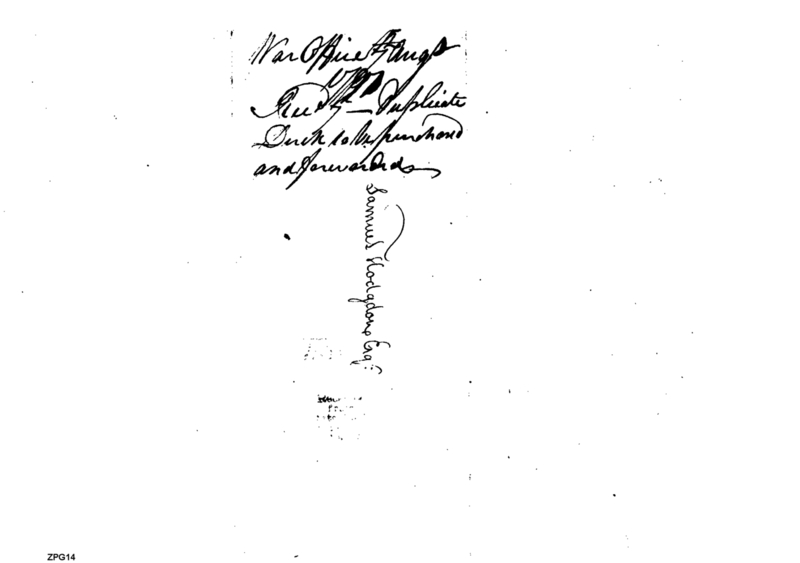 War Office Augt
Duplicate
Duck to be purchased
and forwarded
Samuel Hodgdon Esqr
ZPG14